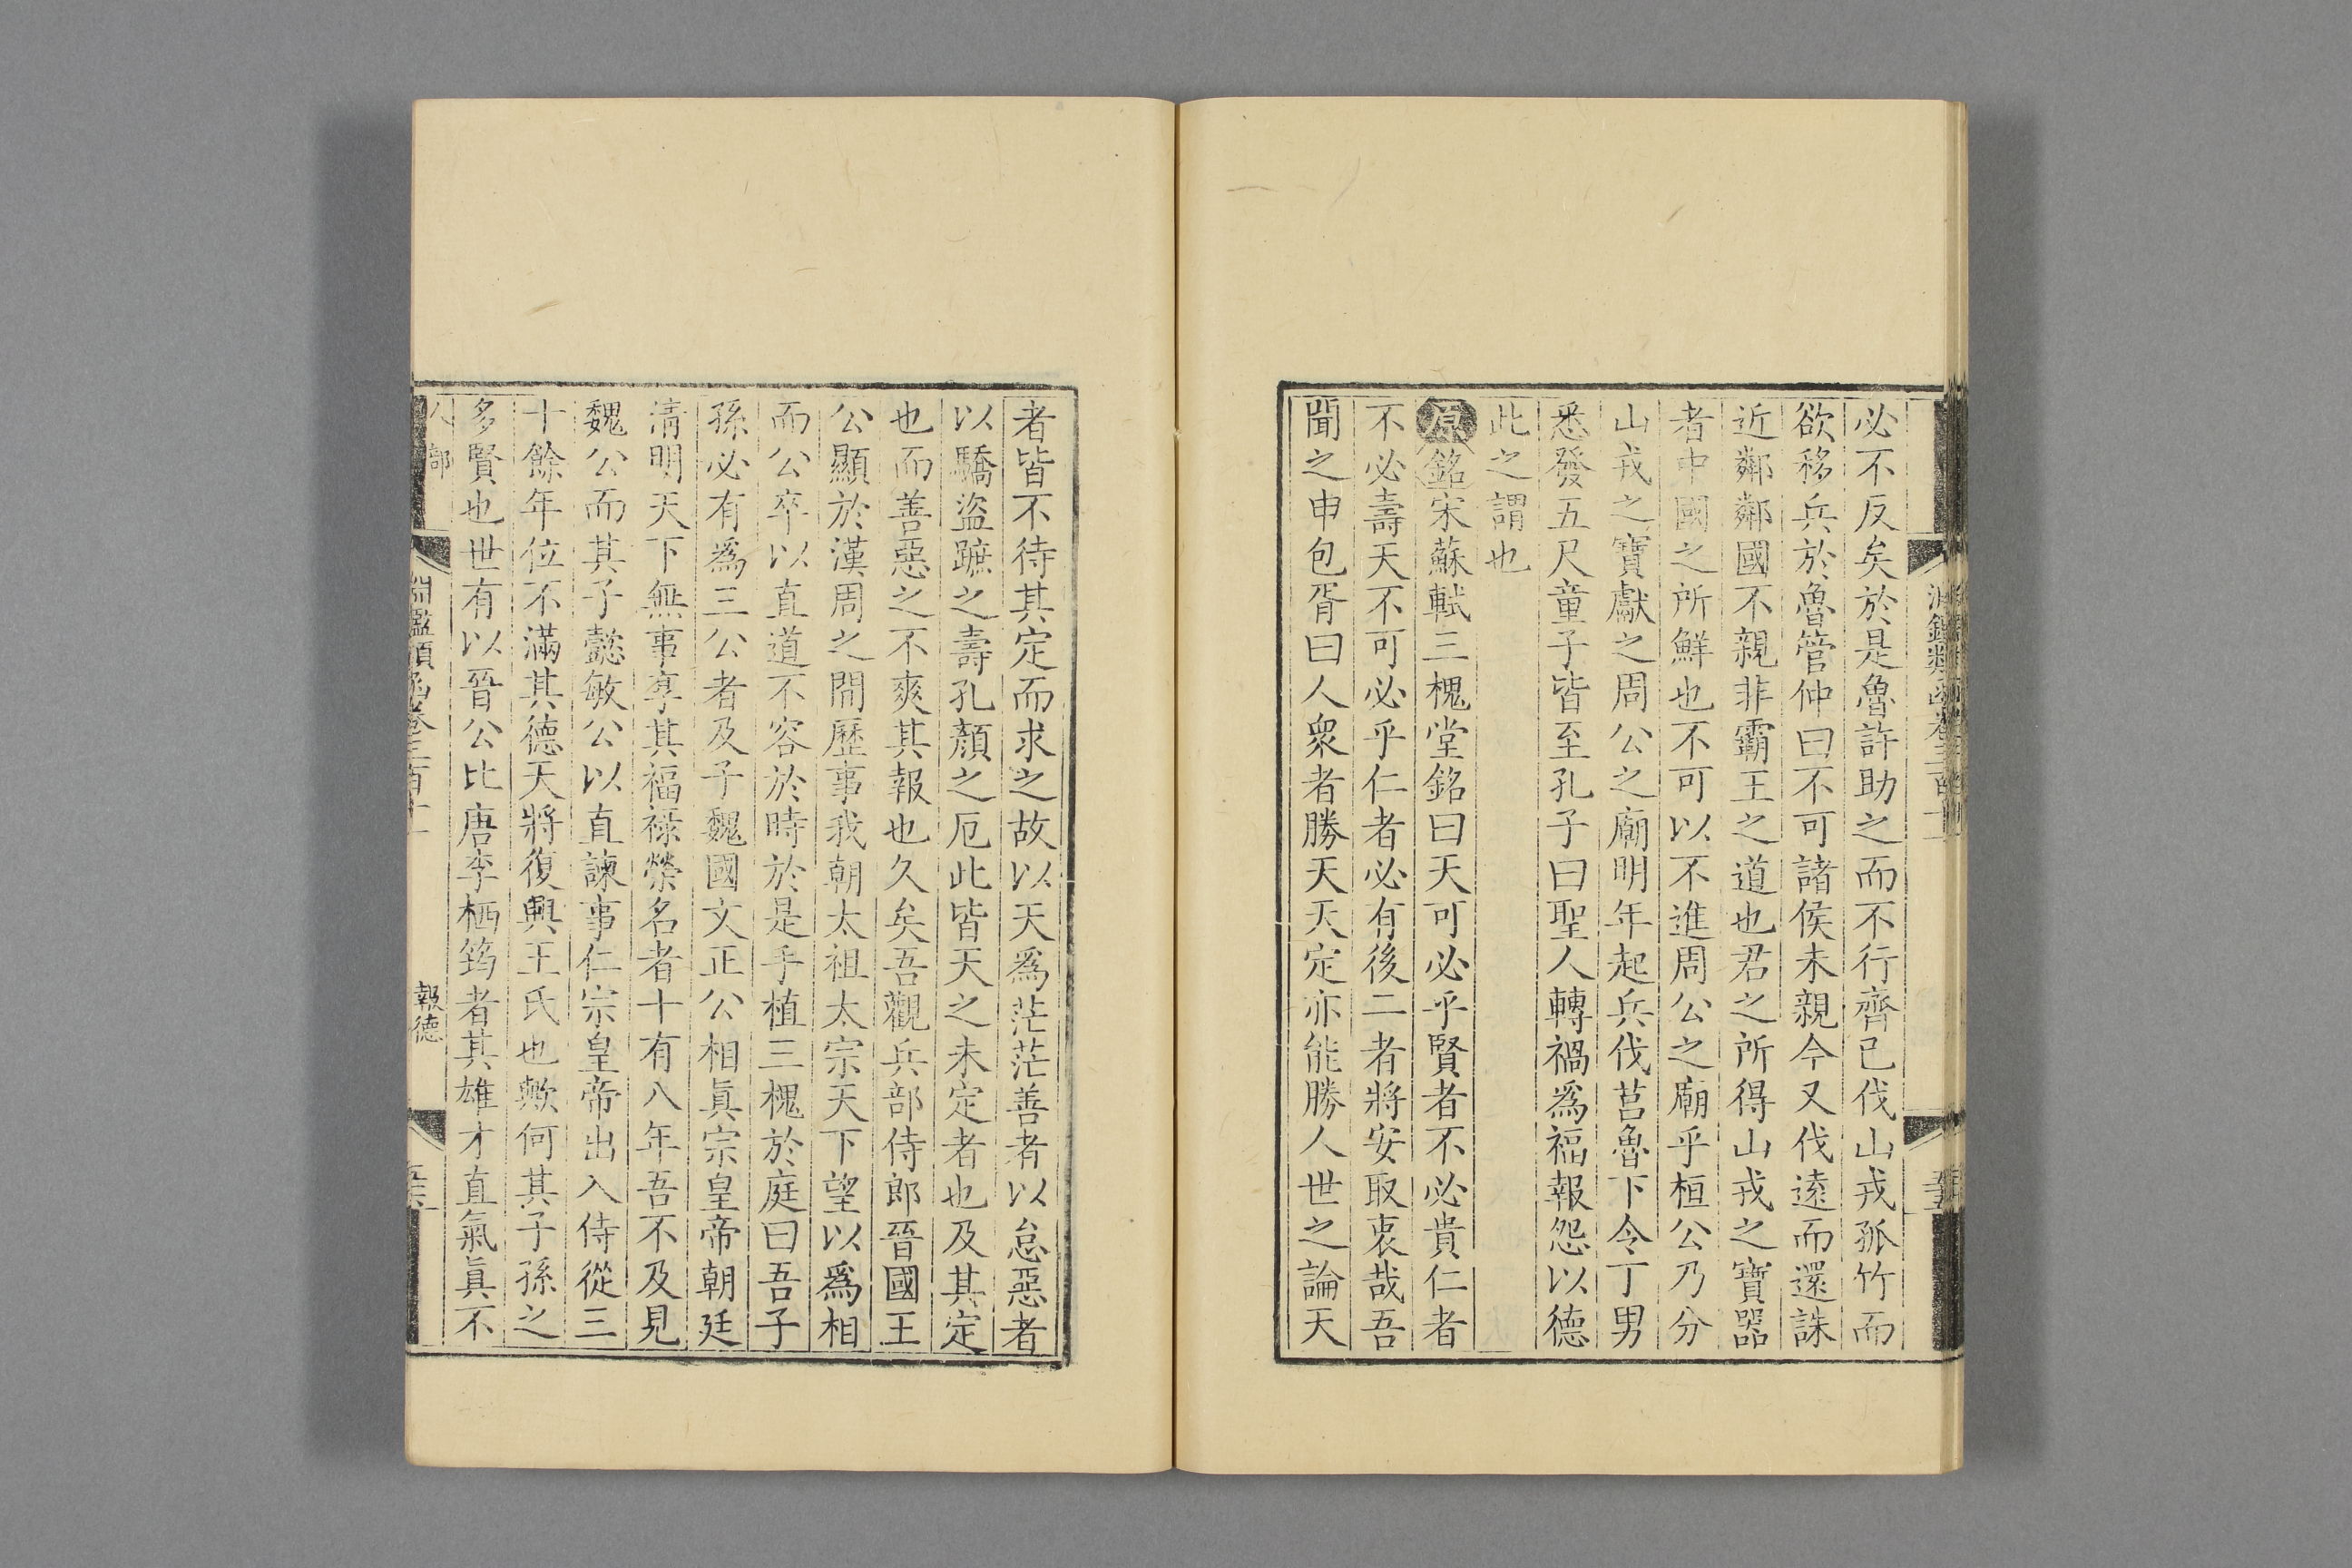 必不反矣於是魯許助之而不行齊已伐山戎孤竹而
欲移兵於魯管仲曰不可諸侯未親今又伐遠而還誅
近鄰鄰國不親非霸王之道也君之所得山戎之寶器
者中國之所鮮也不可以不進周公之廟乎桓公乃分
山戎之寶獻之周公之廟明年起兵伐莒魯下令丁男
悉發五尺童子皆至孔子曰聖人轉禍爲福報怨以德
此之謂也
原銘宋蘇軾三槐堂銘曰天可必乎賢者不必貴仁者
不必壽天不可必乎仁者必有後二者將安取衷哉吾
聞之申包胥曰人衆者勝天天定亦能勝人世之論天
者皆不待其定而求之故以天爲茫茫善者以怠惡者
以驕盜蹠之壽孔顏之厄此皆天之未定者也及其定
也而善惡之不爽其報也久矣吾觀兵部侍郎晉國王
公顯於漢周之閒歷事我朝太祖太宗天下望以爲相
而公卒以直道不容於時於是手植三槐於庭曰吾子
孫必有爲三公者及子魏國文正公相眞宗皇帝朝廷
淸明天下無事享其福祿榮名者十有八年吾不及見
魏公而其子懿敏公以直諫事仁宗皇帝出入侍從三
十餘年位不滿其德天將復興王氏也歟何其子孫之
多賢也世有以晉公比唐李栖筠者其雄才直氣眞不
人部
淵鑑類函卷三百十一
報德